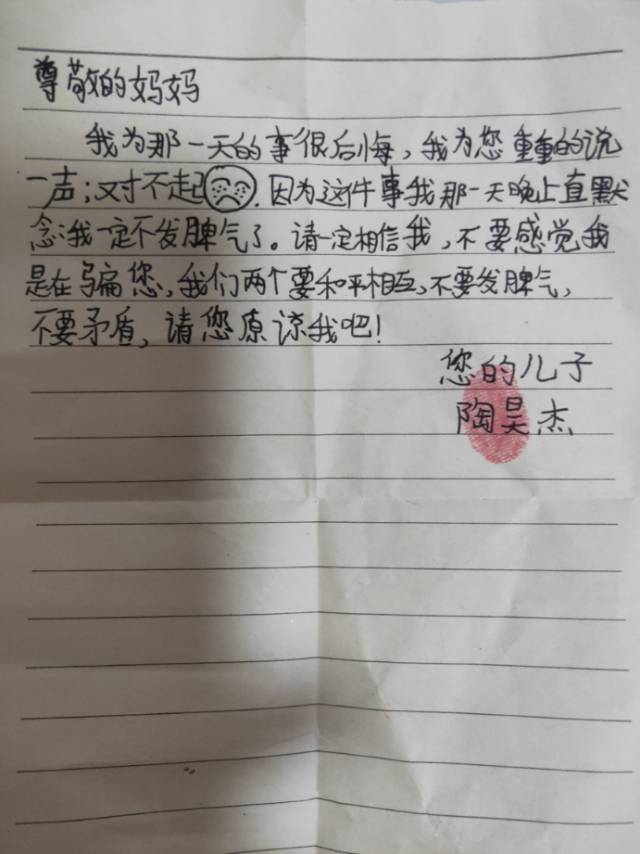 尊敬的妈妈
我为那一天的事很后悔，我为您重重的说
一声；对不起。因为这件事我那一天晚上直默
念：我一定不发脾气了。请一定相信我，不要感觉我
是在骗您，我们两个要和平相互，不要发脾气，
不要矛盾，请您原谅我吧！
您的儿子
陶昊杰